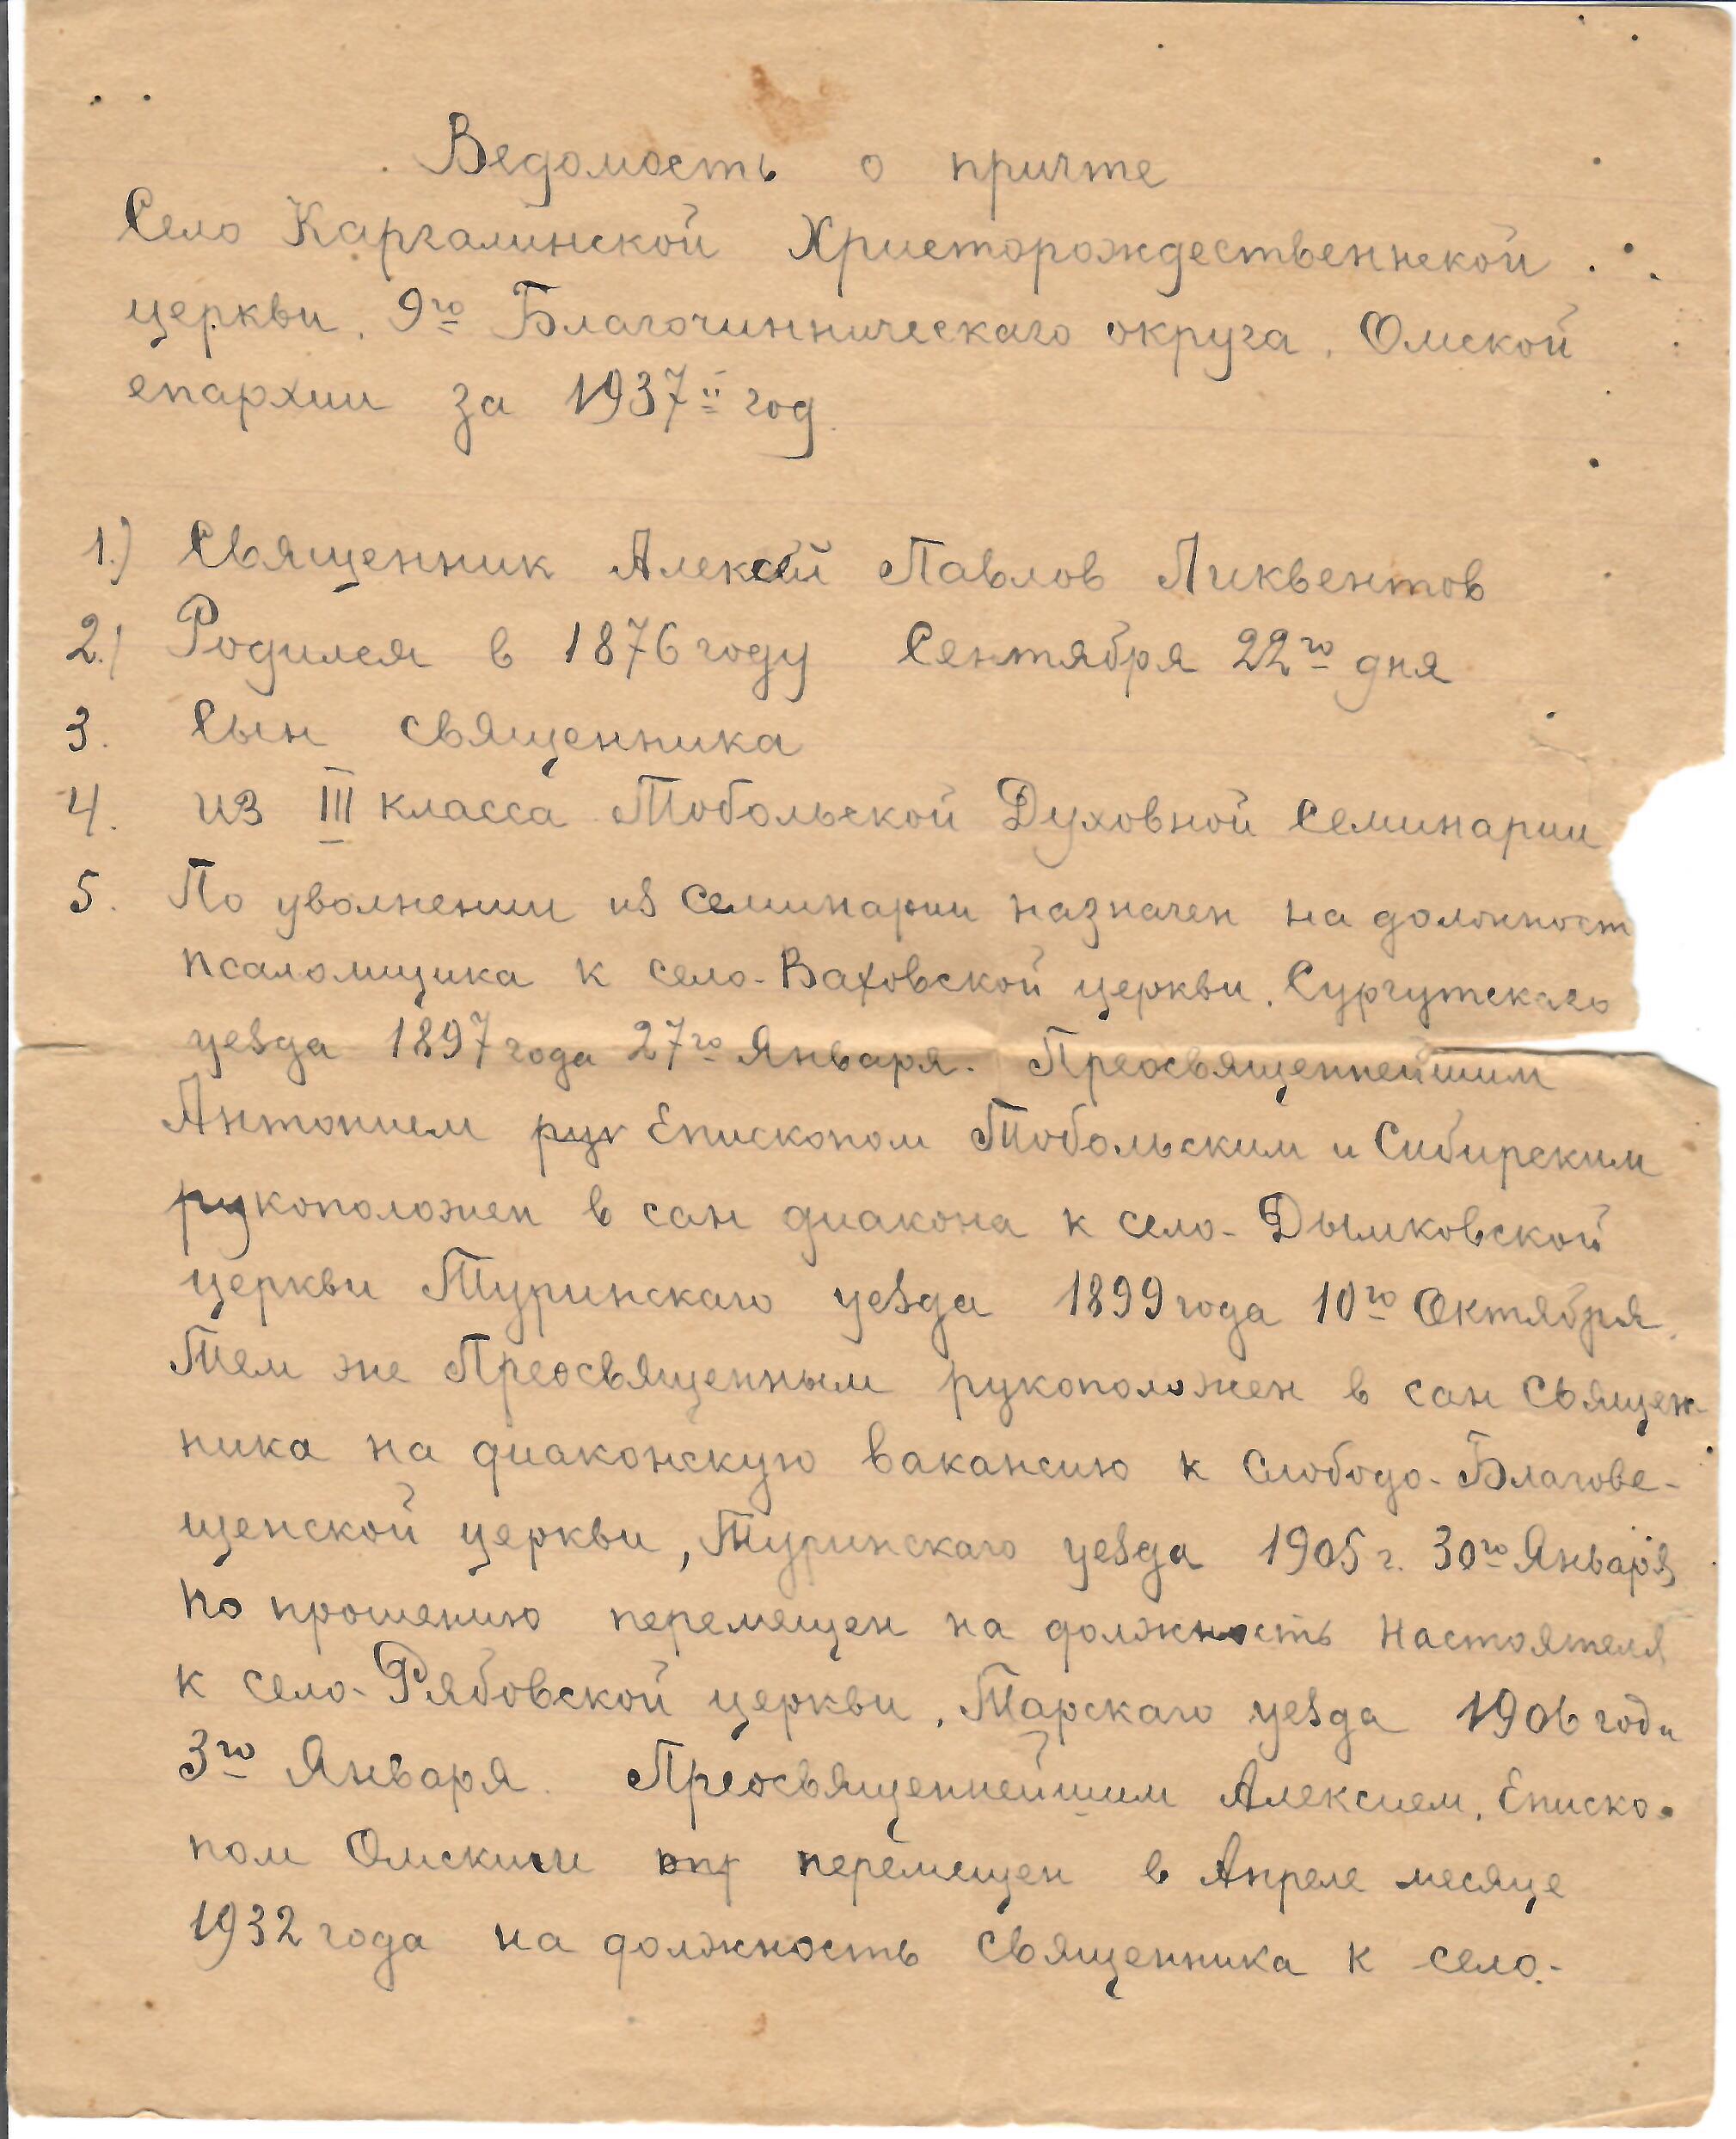 Ведомость о причте
Село Каргалинской Христорождественнской
церкви, 9го Благочинническаго округа, Омской
епархии за 1937й год.
1.) Священник Алексей Павлов Ликвентов
2.) Родился в 1876 году Сентября 22го дня
3. Сын священника
4. из III класса Тобольской Духовной Семинарии
5. По уволнении из Семинарии назначен на должност
псаломщика к село-Ваховской церкви, Сургутскаго
уезда 1897 года 27го Января. Преосвященнейшим
Антонием рук Епископом Тобольским и Сибирским
рукоположен в сан диакона к село-Дымковской
церкви Туринскаго уезда 1899 года 10го Октября.
Тем же Преосвященным рукоположен в сан Священ-
ника на диаконскую вакансию к Слободо-Благове-
щенской церкви, Туринскаго уезда 1905 г. 30го Января,
По прошению перемещен на должность Настоятеля
к село-Рябовской церкви, Тарскаго уезда 1906 года
3го Января. Преосвященнейшим Алексием, Еписко-
пом Омским перемещен в Апреле месяце
1932 года на должность священника к село-